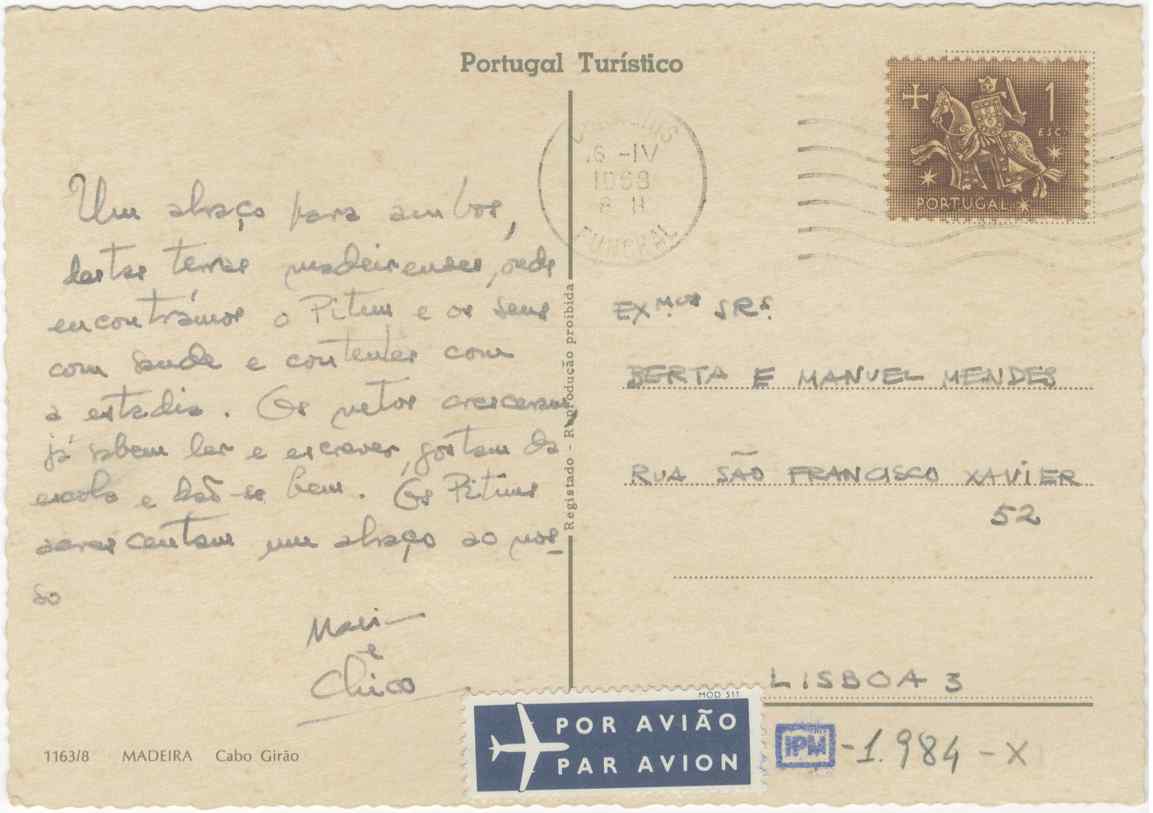 Portugal Turístico
1
ESC.
PORTUGAL
6 -IV
FUNCHAL
Um abraço para ambos,
destas terras madeirenses, onde
encontrámos o Pitum e os seus
com saude e contentes com
a estadia. Os netos cresceram,
já sabem ler e escrever, gostam da
escola e dão-se bem. Os Pituns
acrescentam um abraço ao nos-
so
e
Chico
Registado - Reprodução proibida
EXMOS SRS.
BERTA E MANUEL MENDES
RUA SÃO FRANCISCO XAVIER
52
LISBOA 3
1163/8 MADEIRA Cabo Girão
MOD 511
POR AVIÃO
PAR AVION
IPM -1.984-X